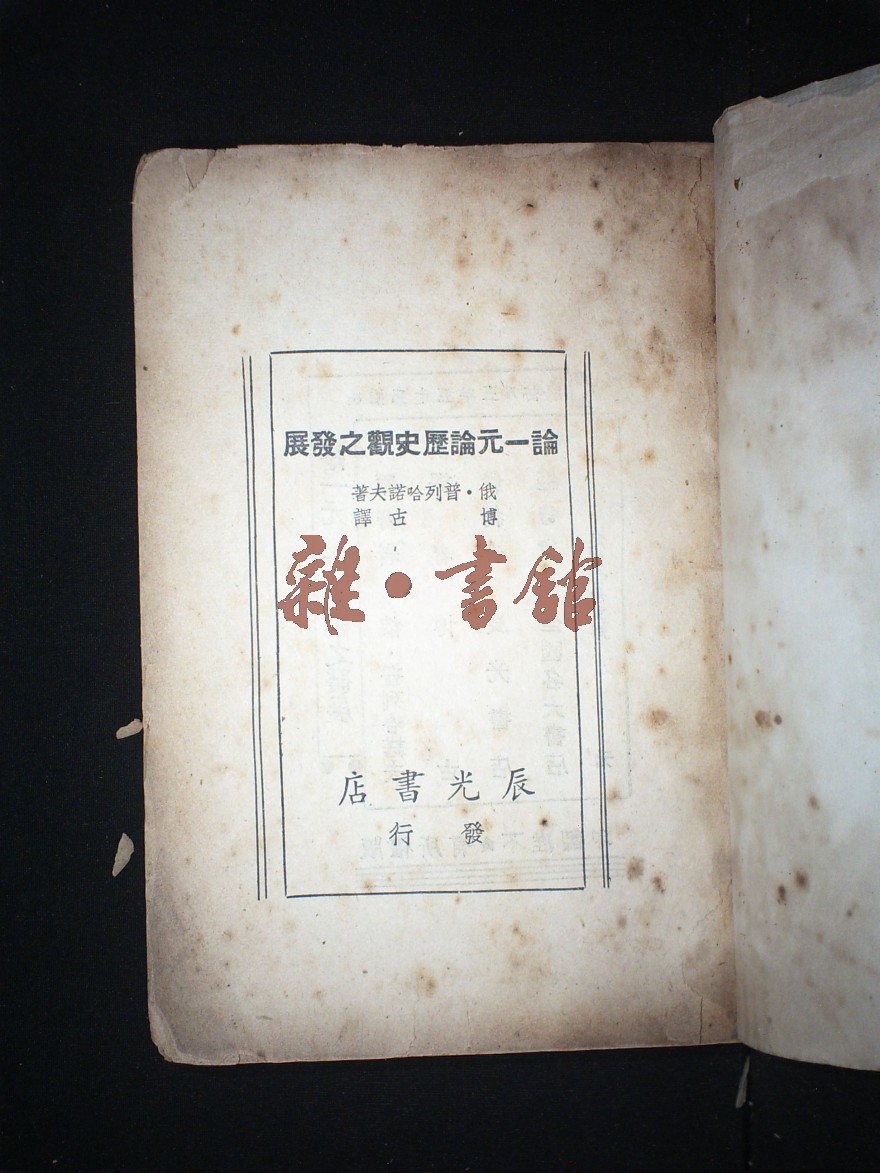 論一元論歷史觀之發展
俄·普列哈諾夫著
博古譯
雜·書館
辰光書店
發行